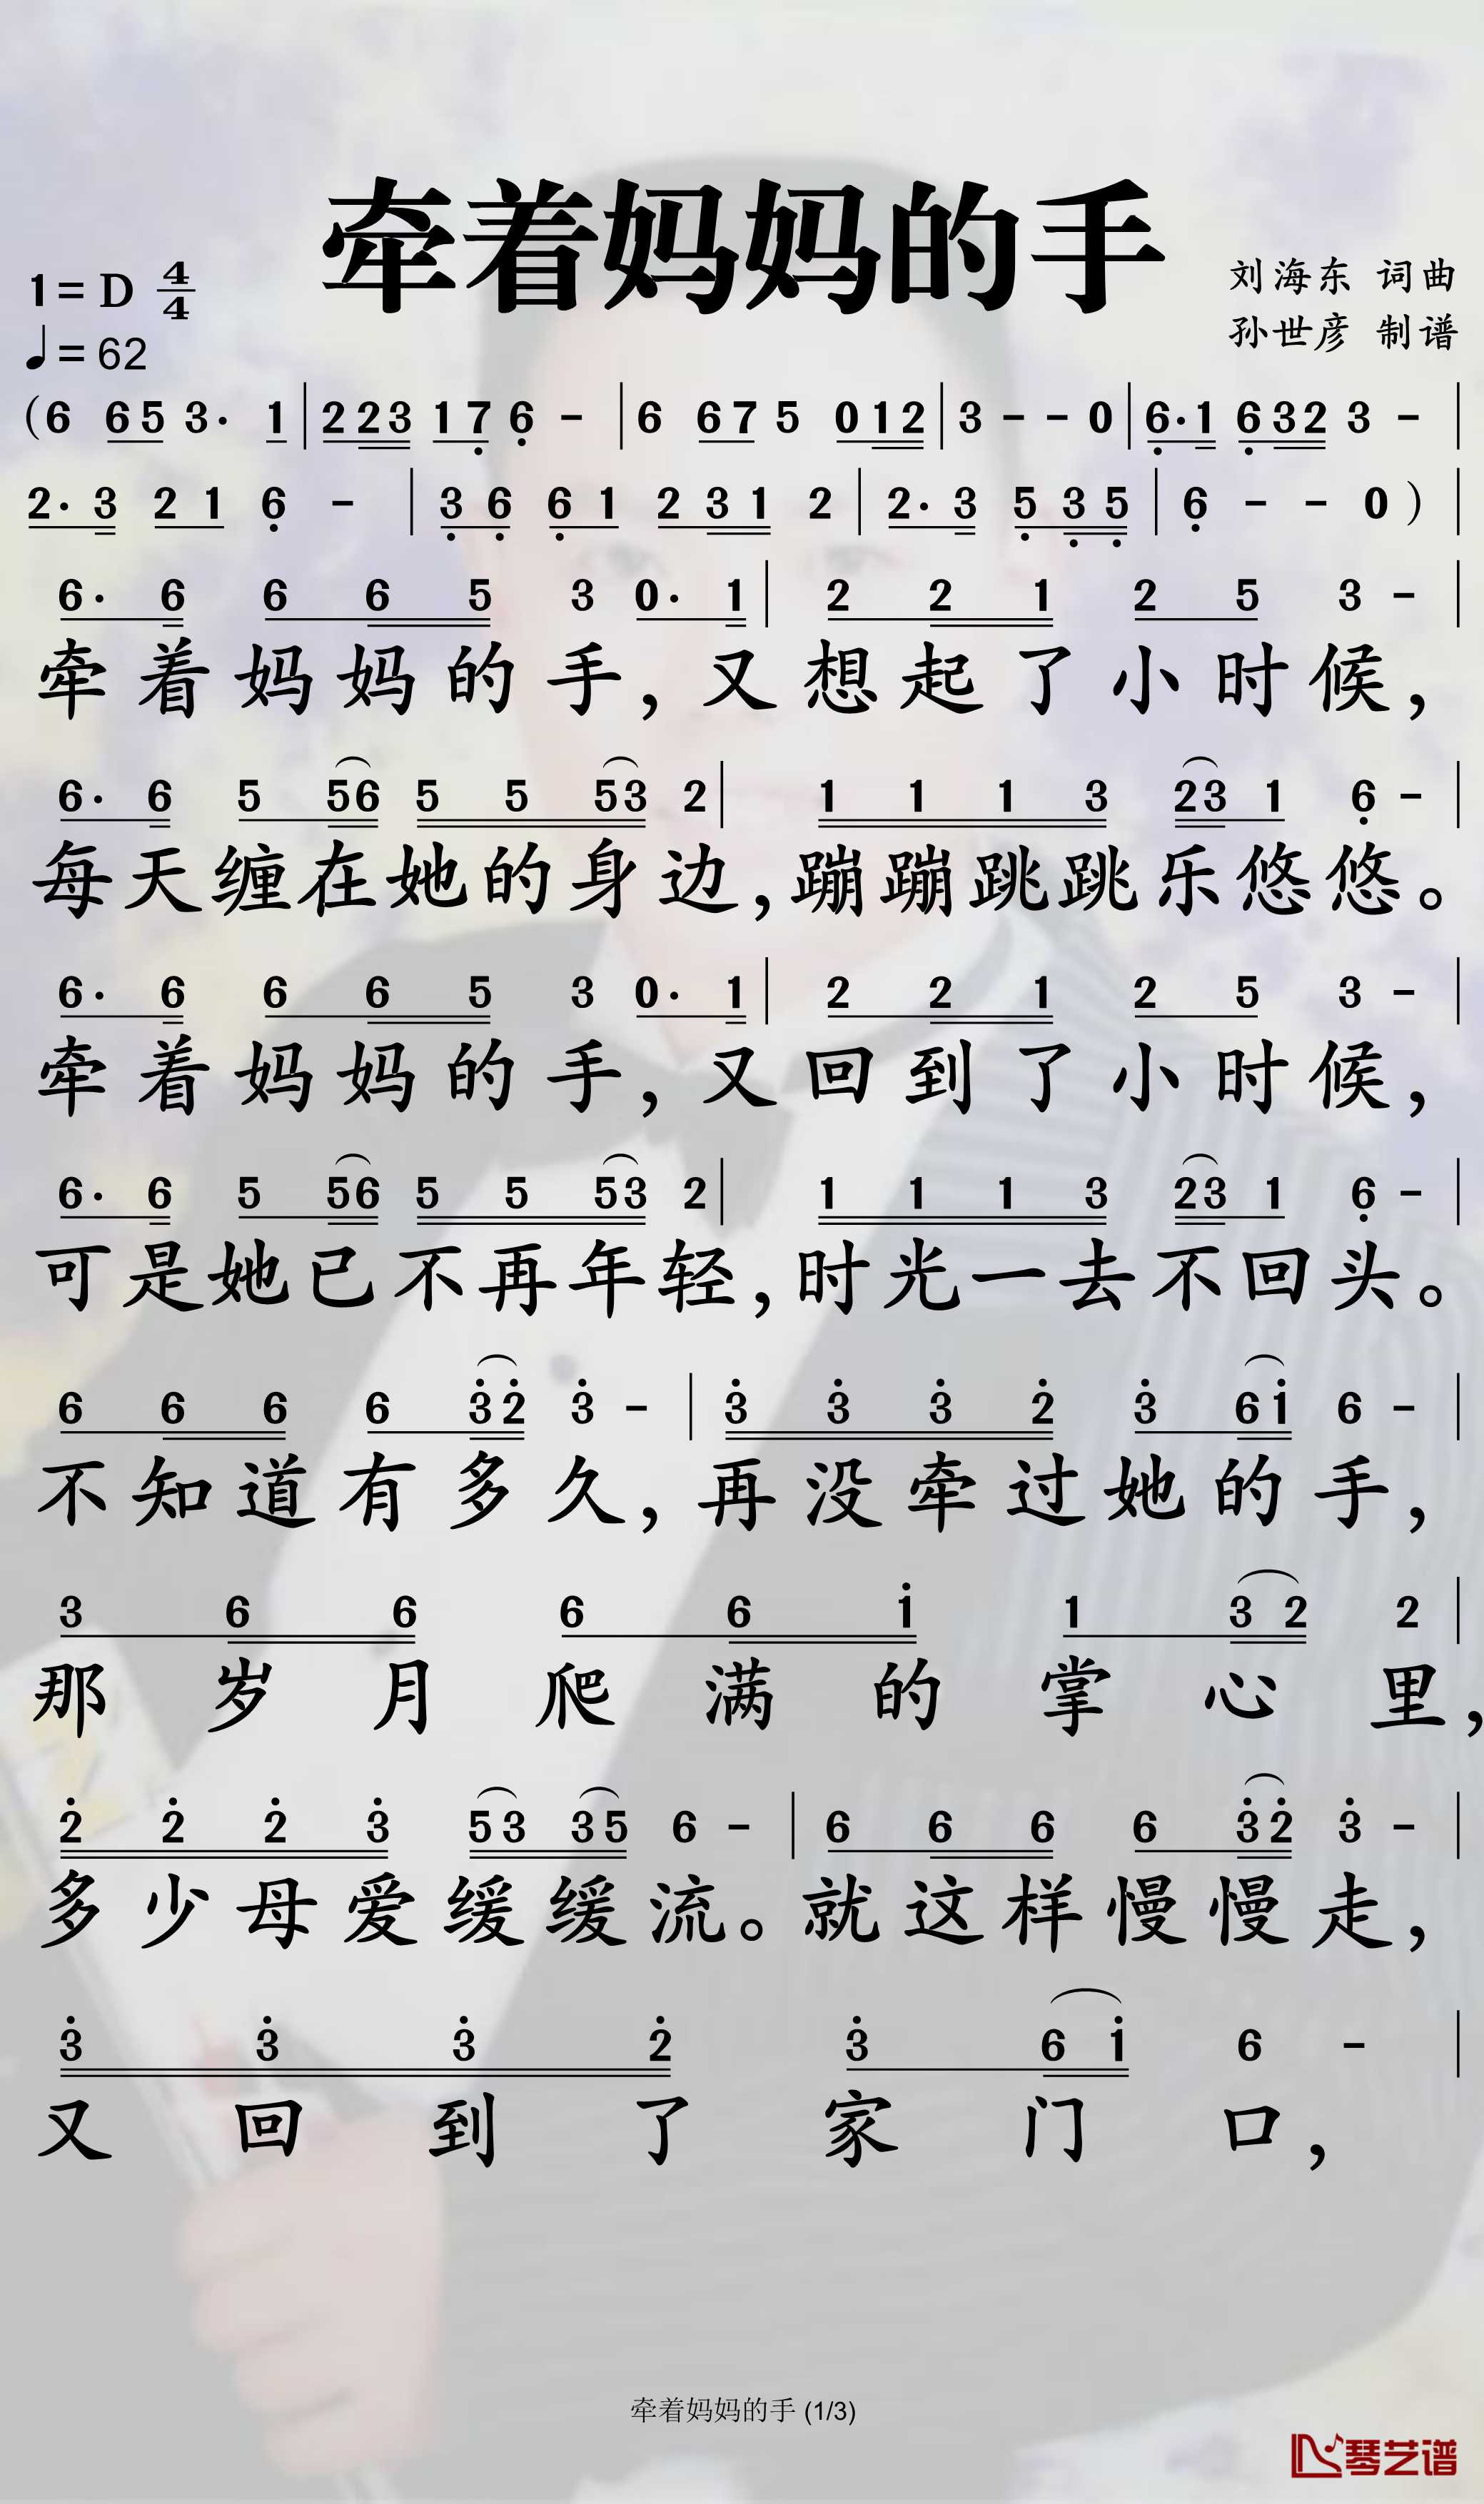 牵着妈妈的手
1=D 4/4
刘海东 词曲
♩=62
孙世彦 制谱
(6 65 3· 1 | 223 17 6̣ - | 6 67 5 012 | 3 - - 0 | 6̣·1 6̣32 3 - |
2·3 21 6̣ - | 3̣6̣ 6̣1 231 2 | 2·3 5̣3̣5̣ | 6̣ - - 0 ) |
6· 6 6 6 5 3 0· 1 | 2 2 1 2 5 3 - |
牵着妈妈的手,又想起了小时候,
6· 6 5 56 5 5 53 2 | 1 1 1 3 23 1 6̣ - |
每天缠在她的身边,蹦蹦跳跳乐悠悠。
6· 6 6 6 5 3 0· 1 | 2 2 1 2 5 3 - |
牵着妈妈的手,又回到了小时候,
6· 6 5 56 5 5 53 2 | 1 1 1 3 23 1 6̣ - |
可是她已不再年轻,时光一去不回头。
6 6 6 6 3̇2̇ 3̇ - | 3̇ 3̇ 3̇ 2̇ 3̇ 61̇ 6 - |
不知道有多久,再没牵过她的手,
3 6 6 6 6 1̇ 1 32 2 |
那岁月爬满的掌心里,
2̇ 2̇ 2̇ 3̇ 53 35 6 - | 6 6 6 6 3̇2̇ 3̇ - |
多少母爱缓缓流。就这样慢慢走,
3̇ 3̇ 3̇ 2̇ 3̇ 61̇ 6 - |
又回到了家门口,
牵着妈妈的手 (1/3)
琴艺谱